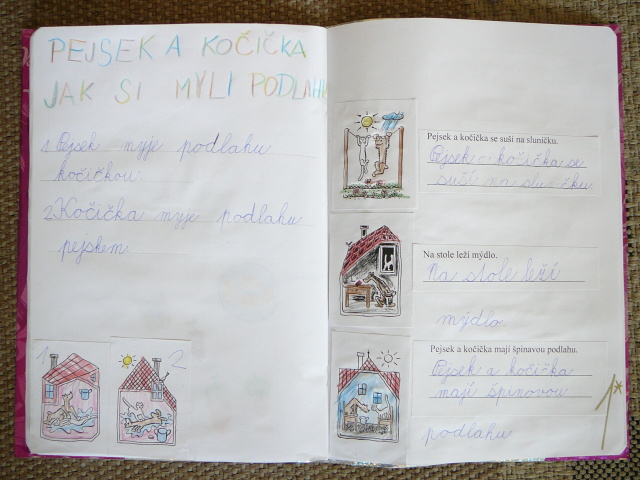 PEJSEK A KOČIČKA
JAK SI MYLI PODLAHU
1. Pejsek myje podlahu
kočičkou.
2. Kočička myje podlahu
pejskem
1
2
Pejsek a kočička se suší na sluníčku.
Pejsek a kočička se
suší na sluníčku.
Na stole leží mýdlo.
Na stole leží
mýdlo.
Pejsek a kočička mají špinavou podlahu.
Pejsek a kočička
mají špinavou
podlahu
1*